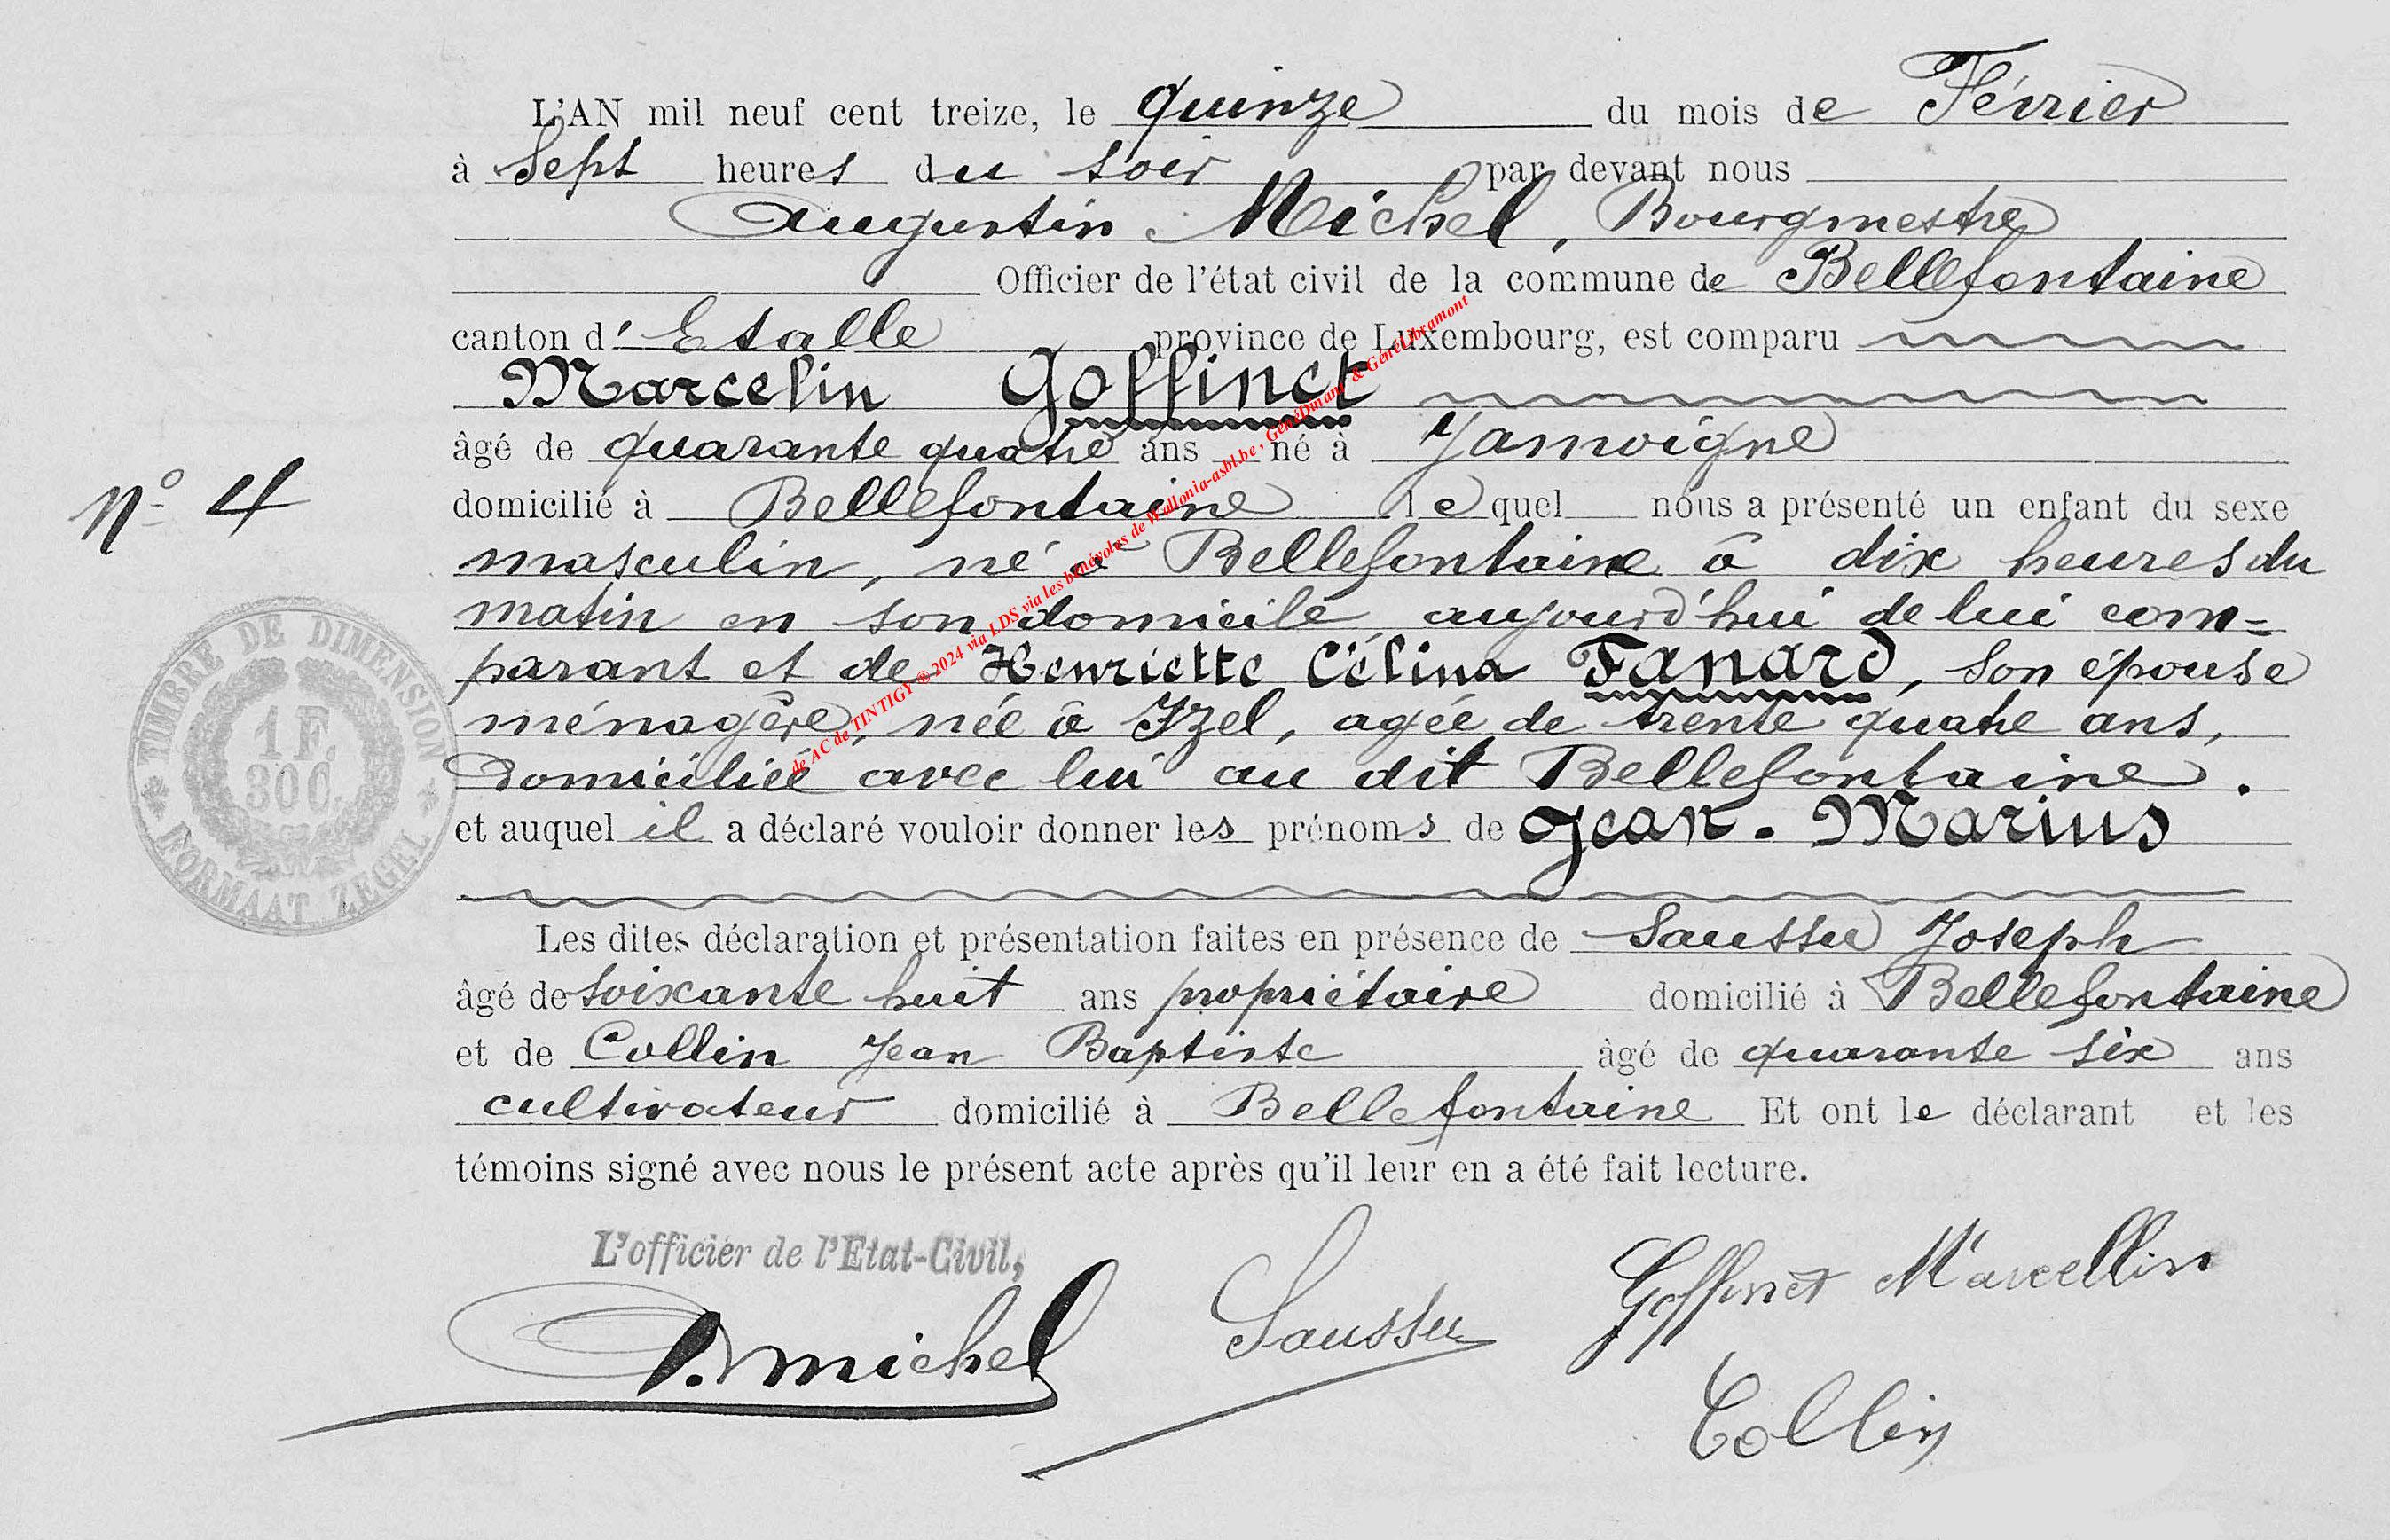 L'AN mil neuf cent treize, le quinze du mois de Février
à Sept heures du soir par devant nous
Augustin Michel, Bourgmestre
Officier de l'état civil de la commune de Bellefontaine
canton d'Etalle province de Luxembourg, est comparu
Marcelin Goffinet
âgé de quarante quatre ans né à Jamoigne
N° 4
domicilié à Bellefontaine lequel nous a présenté un enfant du sexe
masculin, né à Bellefontaine à dix heures du
matin en son domicile aujourd'hui de lui com=
parant et de Henriette Célina Fanard, son épouse
ménagère, née à Izel, agée de trente quatre ans,
domiciliée avec lui au dit Bellefontaine.
et auquel il a déclaré vouloir donner les prénoms de Jean. Marius
Les dites déclaration et présentation faites en présence de Saussu Joseph
âgé de soixante huit ans propriétaire domicilié à Bellefontaine
et de Collin Jean Baptiste âgé de quarante six ans
cultivateur domicilié à Bellefontaine Et ont le déclarant et les
témoins signé avec nous le présent acte après qu'il leur en a été fait lecture.
L'officier de l'Etat-Civil,
A. michel
Saussu
Goffinet Marcellin
Collin
TIMBRE DE DIMENSION
1 F.
30 C.
FORMAAT ZEGEL
de AC de TINTIGY © 2024 via LDS via les bénévoles de Wallonia-asbl.be, GénéDinant & GénéLibramont